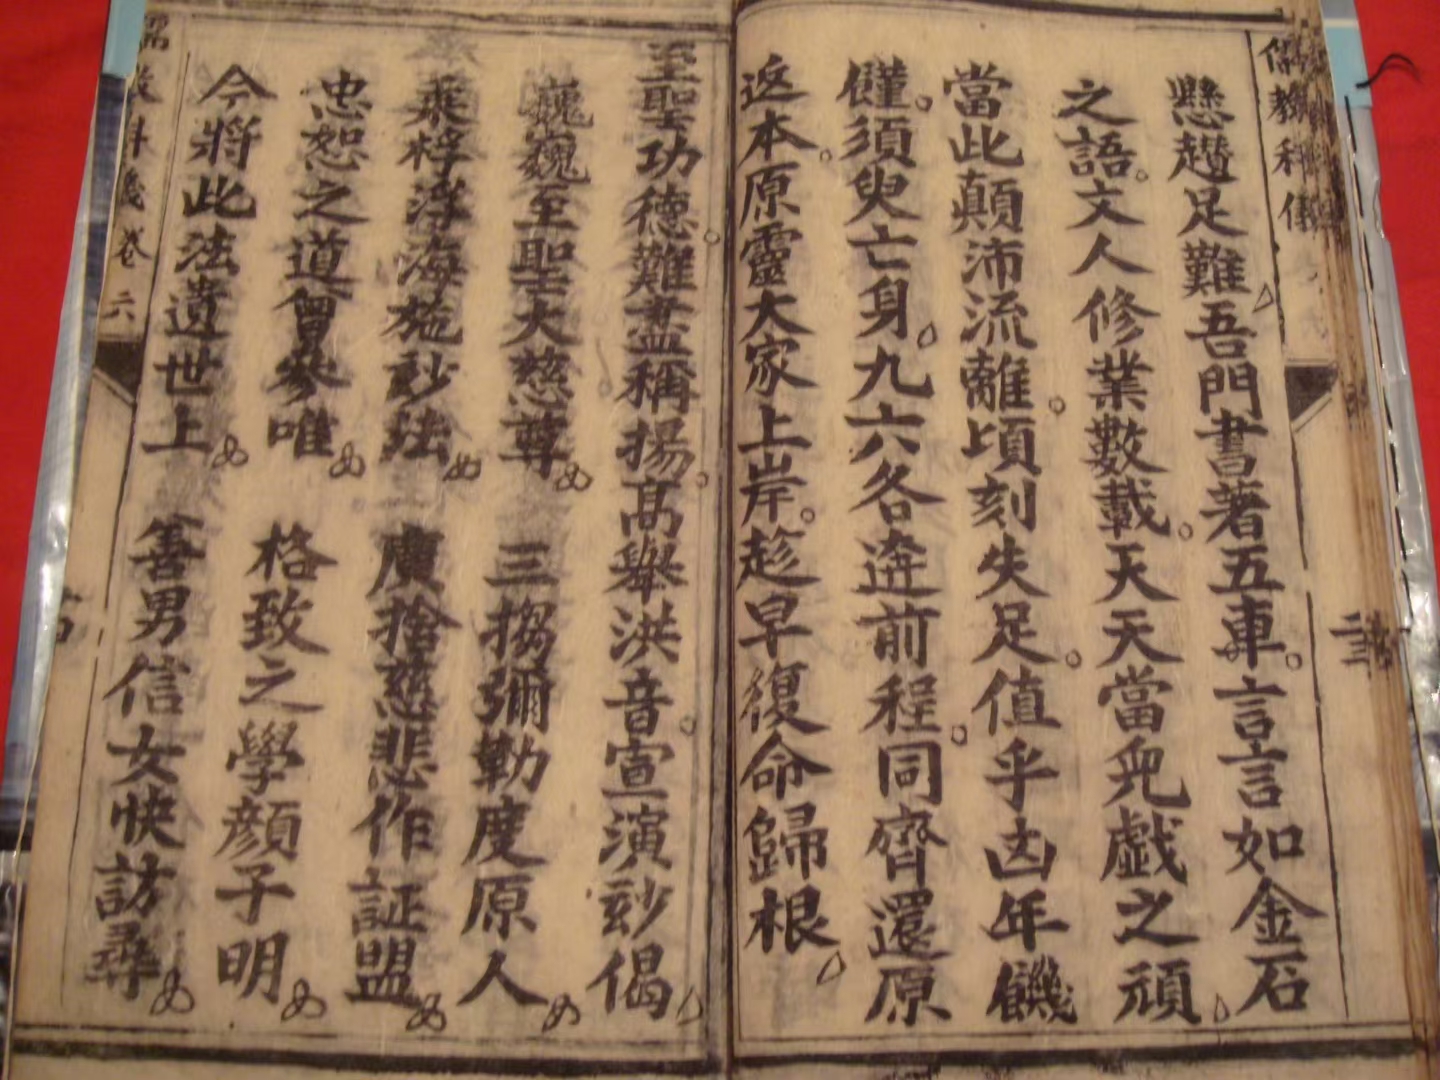 儒教科儀
懸趲足難吾門書著五車言言如金石
之語文人修業數載天天當兒戲之頑
當此顛沛流離頃刻失足值乎凶年饑
饉須臾亡身九六各逩前程同齊還原
返本原靈大家上岸趁早復命歸根
至聖功德難盡稱揚高舉洪音宣演玅偈
巍巍至聖大慈尊 三掦彌勒度原人
乘桴浮海施玅法 廣捨慈悲作証盟
忠恕之道曾參唯 格致之學顏子明
今將此法遺世上 善男信女快訪尋
儒教科儀卷六